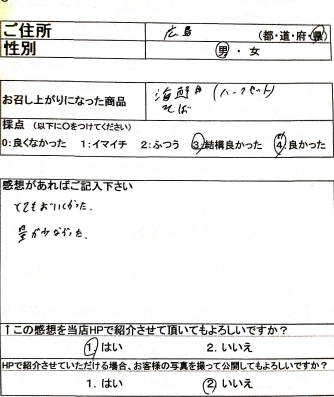 ご住所 広島 (都・道・府・県)
性別 男・女
お召し上がりになった商品 海鮮丼 (ハーフセット)
そば
採点 (以下に○をつけてください)
0:良くなかった 1:イマイチ 2:ふつう 3:結構良かった 4:良かった
感想があればご記入下さい
とてもおいしかった。
量が少なかった。
↑この感想を当店HPで紹介させて頂いてもよろしいですか?
1. はい 2. いいえ
HPで紹介させていただける場合、お客様の写真を撮って公開してもよろしいですか?
1. はい 2. いいえ